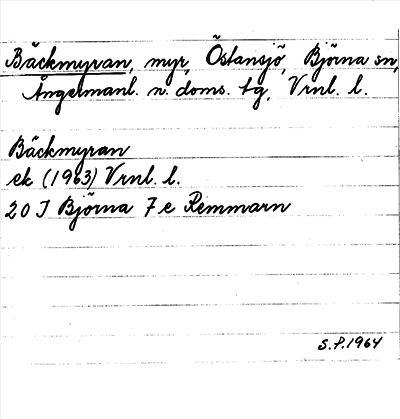 Bäckmyran, myr, Östansjö, Björna sn,
Ångermanl. n. doms. tg, Vrnl. l.
Bäckmyran
ek (1963) Vrnl. l.
20 J Björna 7e Remmarn
S.P. 1964